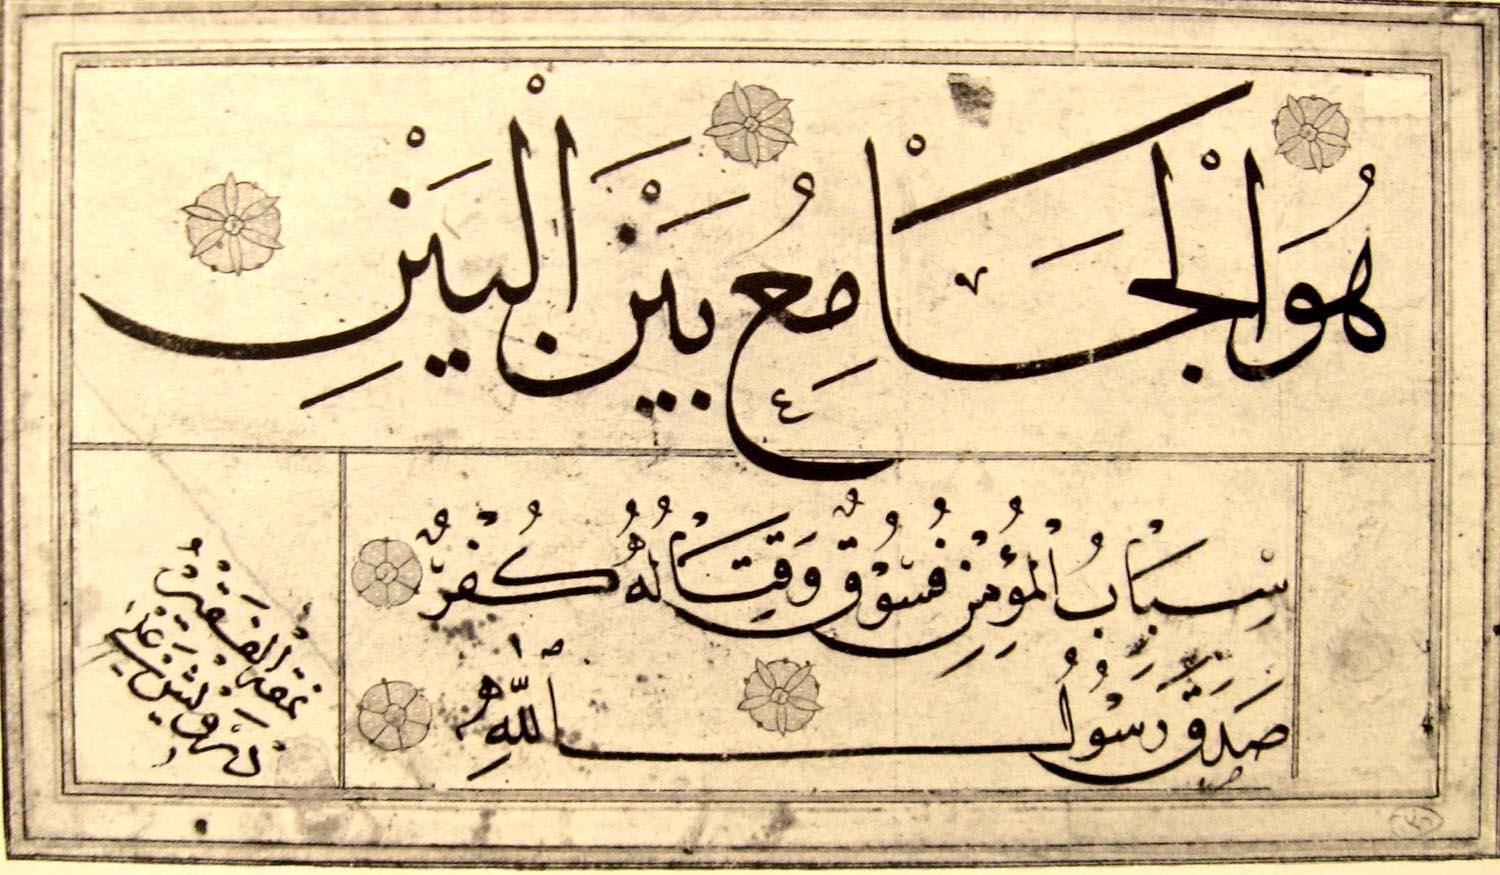 هُوَ الْجَامِعُ بَيْنَ الْبَيْنِ
سِبَابُ الْمُؤْمِنِ فُسُوْقٌ وَقِتَالُهُ كُفْرٌ
صَدَقَ رَسُوْلُ اللّٰهِ
نمقه الفقير
درويش علي